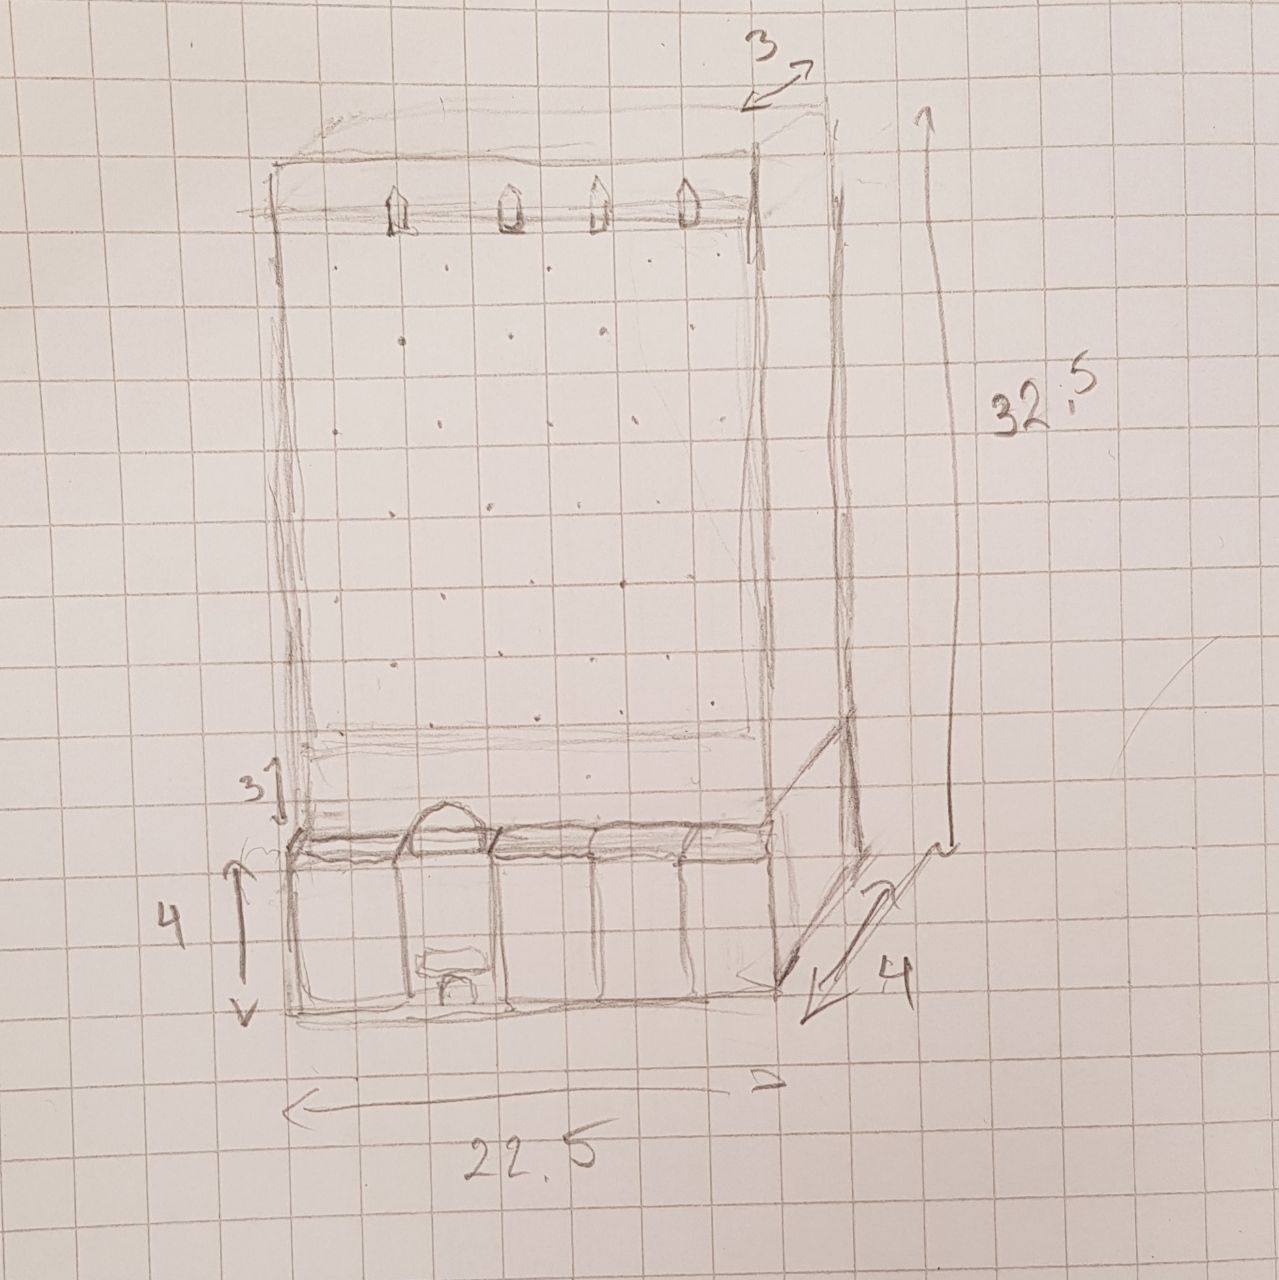 3
32.5
3
4
4
22.5